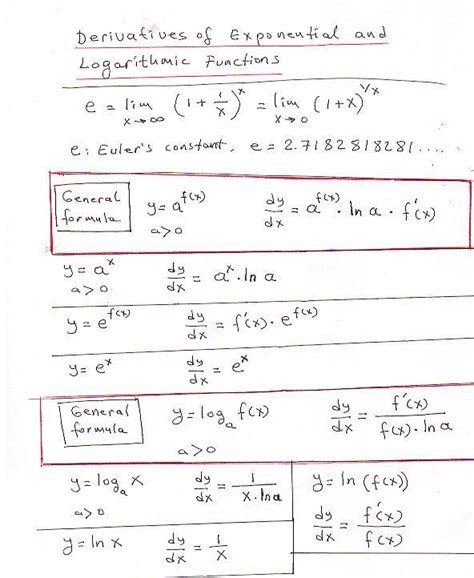 Derivatives of Exponential and
Logarithmic Functions
e = lim x→∞ (1 + 1/x)^x = lim x→0 (1+x)^1/x
e: Euler's constant, e = 2.7182818281....
General formula y = a^f(x) dy/dx = a^f(x) · ln a · f'(x)
a>0
y = a^x dy/dx = a^x · ln a
a>0
y = e^f(x) dy/dx = f'(x) · e^f(x)
y = e^x dy/dx = e^x
General formula y = log_a f(x) dy/dx = f'(x)/f(x) · ln a
a>0
y = log_a x dy/dx = 1/x · ln a
a>0
y = ln x dy/dx = 1/x
y = ln (f(x))
dy/dx = f'(x)/f(x)